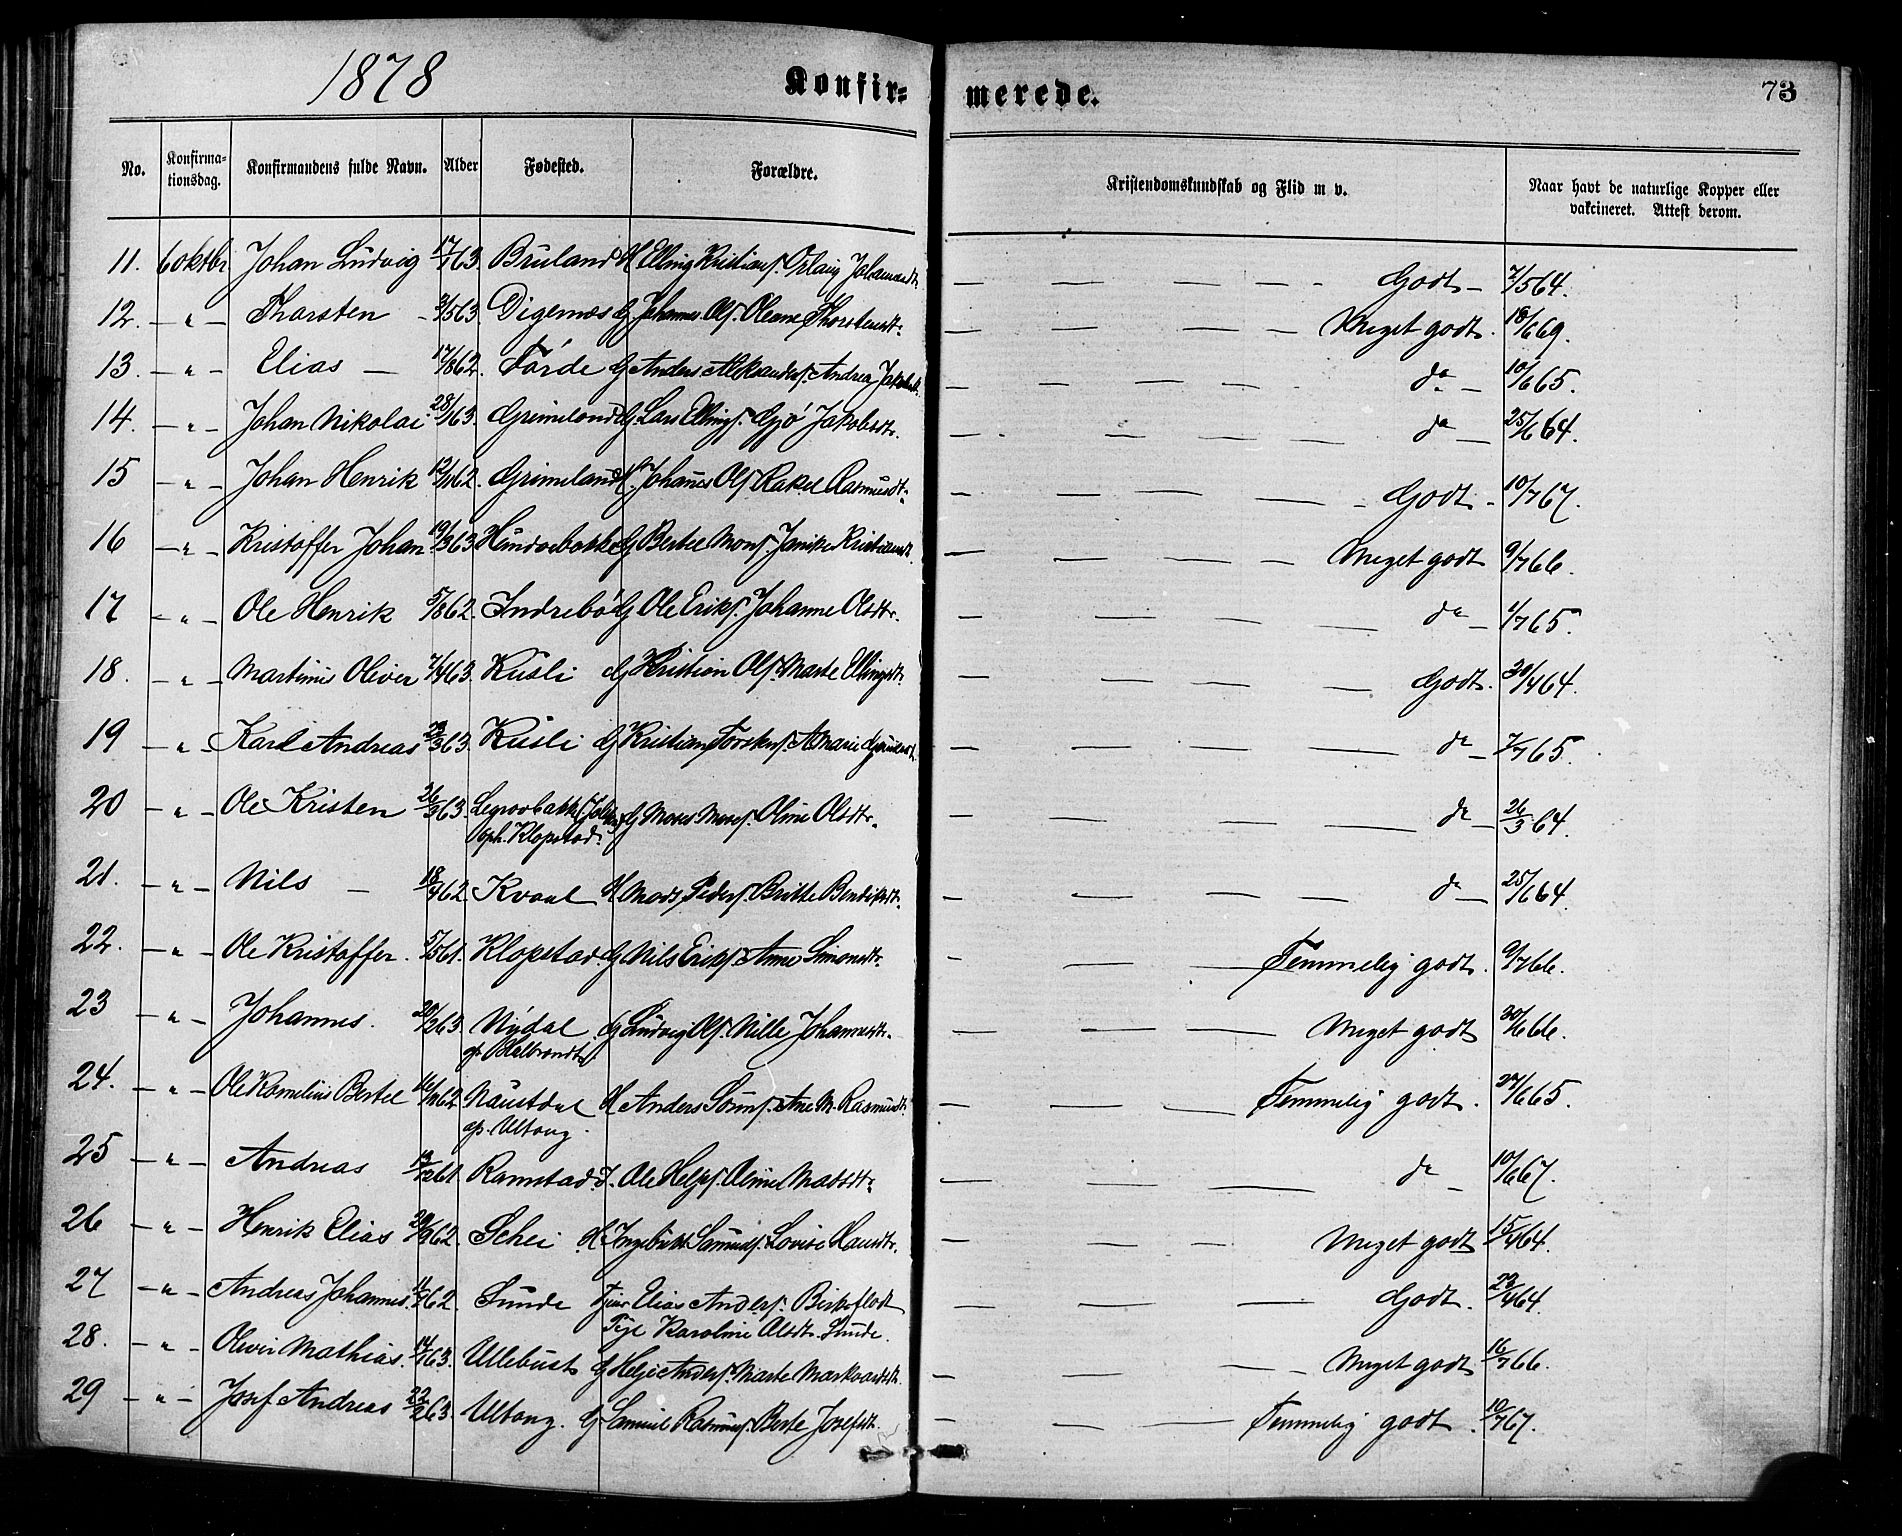 1878
Konfir= merede.
73
No. Konfirma-tionsdag. Konfirmandens fulde Navn. Alder Fødested. Forældre. Kristendomskundskab og Flid m v. Naar havt de naturlige Kopper eller vakcineret. Attest derom.
11. 6 oktbr. Johan Ludvig 17/763. Bruland H Elling Kristians. Johannesdtr. — — — — - Godt - 7/564.
12. — " — Thorsten - 3/563. Digernæs G. Johannes Ols. Oleane Thorstensdtr. — — — — — Meget godt. 18/669.
13. — " — Elias — 17/862. Förde G Anders Aleksanders. Andrea Jakobsdtr. — — — — do — 10/665.
14. — " — Johan Nikolai 28/163. Grimeland G Lars Ellings. Gjø Jakobsdtr. — — — — do — 25/664.
15 — " — Johan Henrik 12/1062. Grimeland H. Johanes Ols. Rakel Rasmusdtr. — — — — Godt - 10/767.
16 — " — Kristoffer Johan 19/363. Hundvebakke G Bertel Mons. Kristiansdtr. — — — — Meget godt 9/766.
17 — " — Ole Henrik 5/862. Indrebö G Ole Eriks. Johanne Olsdtr. — — — — do — 1/765.
18. — " — Martinus Oliver 7/463. Kusli G Kristian Ols. Marte Ellingsdtr. — — — — Godt. 30/464.
19 — " — Karl Andreas 23/363. Kusli G Kristian Torstens. A Marie — — — — do — 7/765.
20 — " — Ole Kristen 26/363. G Moses Moses. Oline Olsdtr. — — — — do — 26/3 64.
oph. Klopstad.
21. — " — Nils — 18/962. Kvaal H Mads Peders. Britte Bendiksdtr. — — — — do — 25/664.
22. — " — Ole Kristoffer. 5/561. Klopstad G Nils Eriks. Anne Simonsdtr. — — — Temmelig godt. 9/766.
23 — " — Johannes. 20/263. Nydal G Ludvig Ols. Nille Johannesdtr. — — — — Meget godt 30/666.
op. Halbrendt.
24. — " — Ole Kornelius Bertel 16/1062. Naustdal H Anders Ane M. Rasmusdtr. — — — Temmelig godt. 27/665.
op. Ultang.
25 — " — Andreas 13/1261. Ramstad. Ole Helges. Oline Madsdtr. — — — — do — 10/667.
26 — " — Henrik Elias 29/962. Schei H Ingebrikt Samuels. Lovise Hansdtr. — — — Meget godt 15/464.
27 — " — Andreas Johannes. 11/762. Sunde Tjener Elias Anders. — — — Godt. 23/464.
Pige Karoline Olsdtr. Sunde.
28. — " — Oliver Mathias. 14/163. Ullebust G Helge Anders. Marte Markvardsdtr. — — — — Meget godt 16/766.
29 — " — Josef Andreas 22/263. Ultang. G Samuel Rasmus. Berte Josefsdtr. — — — Temmelig godt. 10/767.